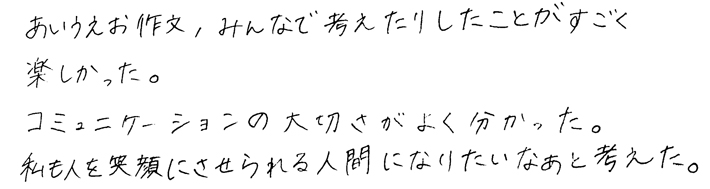 あいうえお作文，みんなで考えたりしたことがすごく
楽しかった。
コミュニケーションの大切さがよく分かった。
私も人を笑顔にさせられる人間になりたいなあと考えた。